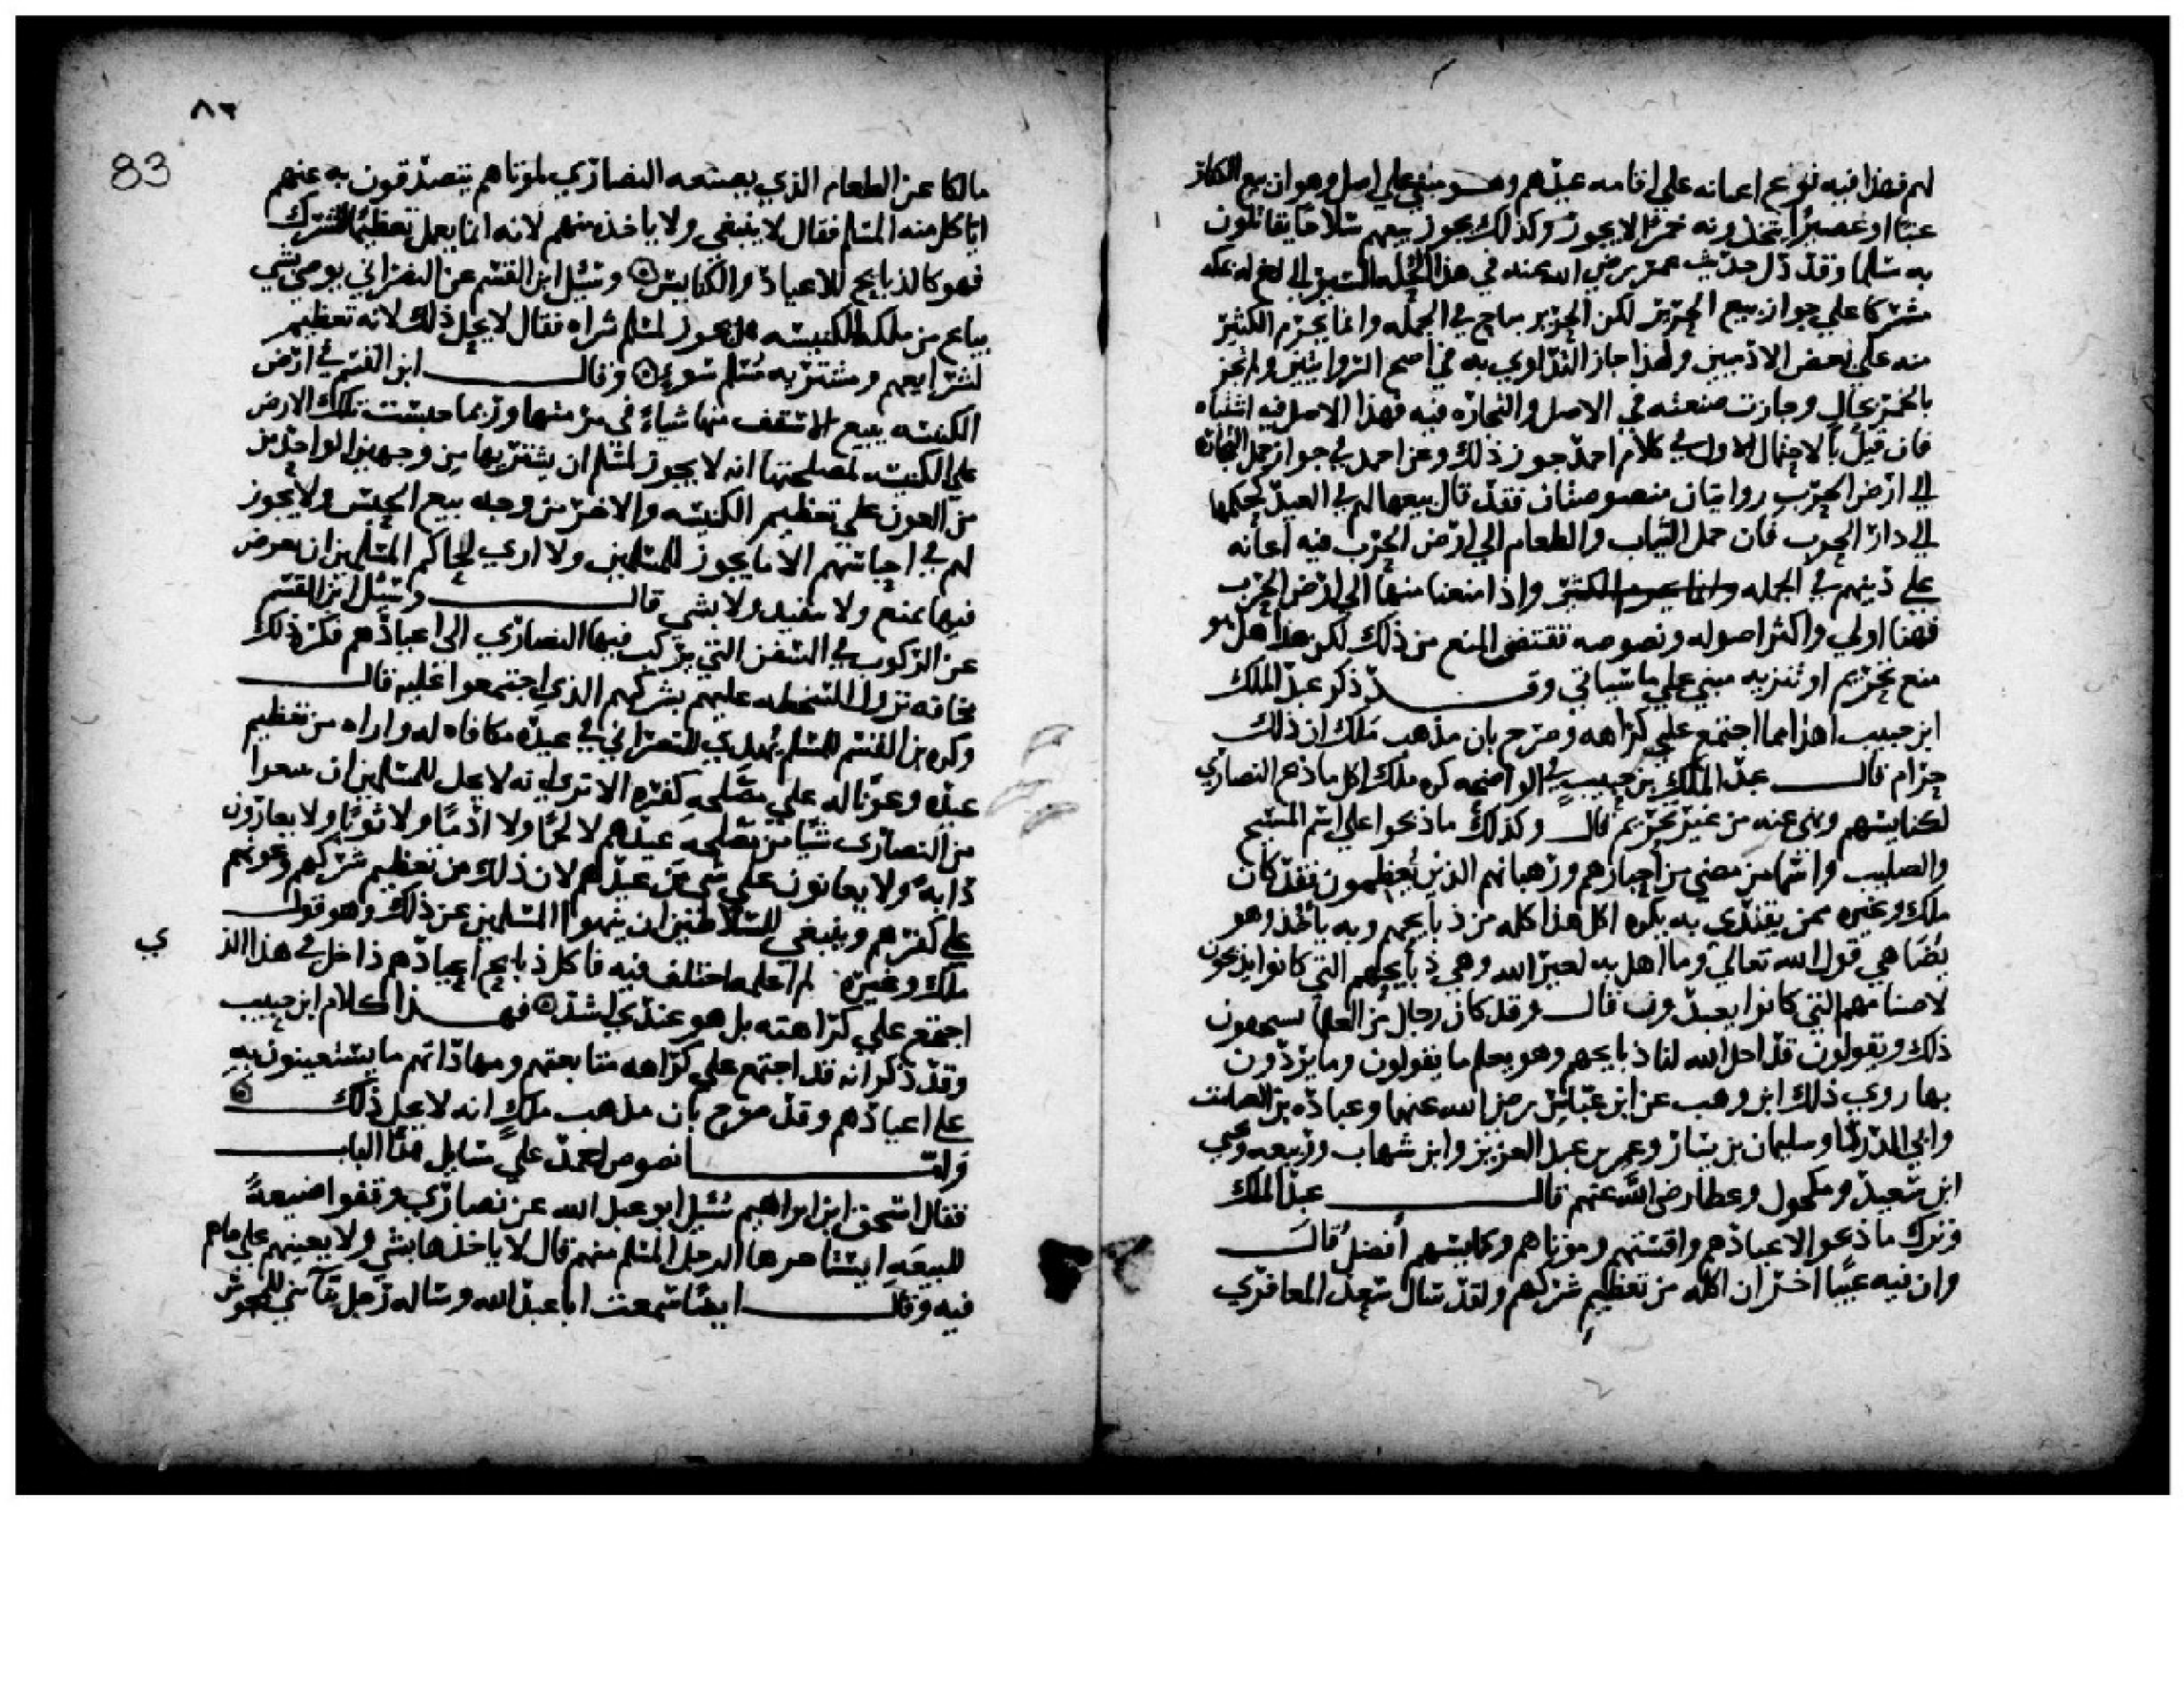 لهم فهذا فيه نوع اعانه علي اقامه عيدهم وهو مبني علي اصل وهو ان بيع الكفار
عنبا او عصيرا يتخذونه خمرا لا يجوز وكذلك يجوز بيعهم سلاحا يقاتلون
به مسلما وقد دل حديث عمر رضي الله عنه في هذا الحله السيرا الي اخ له بمكه
مشركا علي جواز بيع الحرير لكن الحرير مباح في الجمله وانما يحرم الكثير
منه علي بعض الادميين ولهذا جاز التداوي به في اصح الروايتين ولم يجز
بالخمر بحال وجازت صنعته في الاصل والتجاره فيه فهذا الاصل فيه اشتباه
فان قيل بالاحتمال الاول في كلام احمد جوز ذلك وعن احمد في جواز حمل التجاره
الي ارض الحرب روايتان منصوصتان فقد قال بيعها لهم في العيد كحملها
الي دار الحرب فان حمل الثياب والطعام الي ارض الحرب فيه اعانه
علي دينهم في الجمله وانما يحرم الكثير واذا منعنا منها الي ارض الحرب
فهنا اولي واكثر اصوله ونصوصه تقتضي المنع من ذلك لكن هذا هل هو
منع تحريم او تنزيه مبني علي ما سياتي وقد ذكر عبد الملك
ابن حبيب ان هذا مما اجتمع علي كراهه وصرح بان مذهب ملك ان ذلك
حرام قال عبد الملك بن حبيب في الواضحه كره ملك اكل ما ذبح النصاري
لكنايسهم ونهي عنه من غير تحريم قال وكذلك ما ذبحوا علي اسم المسيح
والصليب واسما من مضي من احبارهم ورهبانهم الذين يعظمون فقد كان
ملك وغيره ممن يقتدي به يكره اكل هذا كله من ذبايحهم وبه ياخذ وهو
يضاهي قول الله تعالي وما اهل به لغير الله وهي ذبايحهم التي كانوا يذبحون
لاصنامهم التي كانوا يعبدون قال وقد كان رجال من العلما يستخفون
ذلك ويقولون قد احل الله لنا ذبايحهم وهو يعلم ما يقولون وما يردون
بها روي ذلك ابن وهب عن ابن عباس رضي الله عنهما وعباده بن الصامت
وابي الدردا وسليمان بن يسار وعمر بن عبد العزيز وابن شهاب وربيعه ويحي
ابن سعيد ومكحول وعطا رضي الله عنهم قال عبد الملك
وترك ما ذبحوا لاعيادهم واقستهم وموتاهم وكنايسهم افضل قال
وان فيه عيبا اخر ان اكله من تعظيم شركهم ولقد سال سعد المعافري
٨٣
83
مالكا عن الطعام الذي يصنعه النصاري لموتاهم يتصدقون به عنهم
اياكل منه المسلم فقال لا ينبغي ولا ياخذه منهم لانه انما يعمل تعظيما للشرك
فهو كالذبايح للاعياد والكنايس وسئل ابن القسم عن النصراني يوصي بشي
يباع من ملكه للكنيسه هل يجوز لمسلم شراه فقال لا يحل ذلك لانه تعظيم
لشرايعهم ومشتريه مسلم سوء وقال ابن القسم في ارض
الكنيسه يبيع الاسقف منها شياء في مرمتها وربما حبست تلك الارض
علي الكنيسه لمصلحتها انه لا يجوز لمسلم ان يشتريها من وجهين الواحد من
من العون علي تعظيم الكنيسه والاخر من وجه بيع الحبس ولا يجوز
لهم في احباسهم الا ما يجوز للمسلمين ولا اري لحاكم المسلمين ان يعرض
فيها بمنع ولا تنفيذ ولا بشي قال وسئل ابن القسم
عن الركوب في السفن التي يركب فيها النصاري الي اعيادهم فكره ذلك
مخافه نزول السخطه عليهم بشركهم الذي اجتمعوا عليه قال
وكره بن القسم للمسلم يهدي للنصراني في عيده مكافاه له وراه من تعظيم
عيده وعونا له علي مصلحه كفره الا تري انه لا يحل للمسلمين ان يبيعوا
من النصاري شيا من مصلحه عيدهم لا لحما ولا ادما ولا ثوبا ولا يعارون
دابه ولا يعانون علي شي من عيدهم لان ذلك من تعظيم شركهم وعونهم
علي كفرهم وينبغي للسلاطين ان ينهوا المسلمين عن ذلك وهو قول
ملك وغيره لم اعلمه اختلف فيه فاكل ذبايح اعيادهم داخل في هذا الذ
ي
اجتمع علي كراهته بل هو عندي اشد فهذا كلام ابن حبيب
وقد ذكر انه قد اجتمع علي كراهه متابعتهم ومهاداتهم ما يستعينون به
علي اعيادهم وقد صرح بان مذهب ملك انه لا يحل ذلك
واما نصوص احمد علي مسايل هذا الباب
فقال اسحق ابن ابراهيم سئل ابو عبد الله عن نصاري وقفوا ضيعة
للبيعه ايستاجرها الرجل المسلم منهم قال لا ياخذها بشي ولا يعينهم علي ما هم
فيه وقال ايضا سمعت ابا عبد الله وساله رجل بنا ابني للمجوس